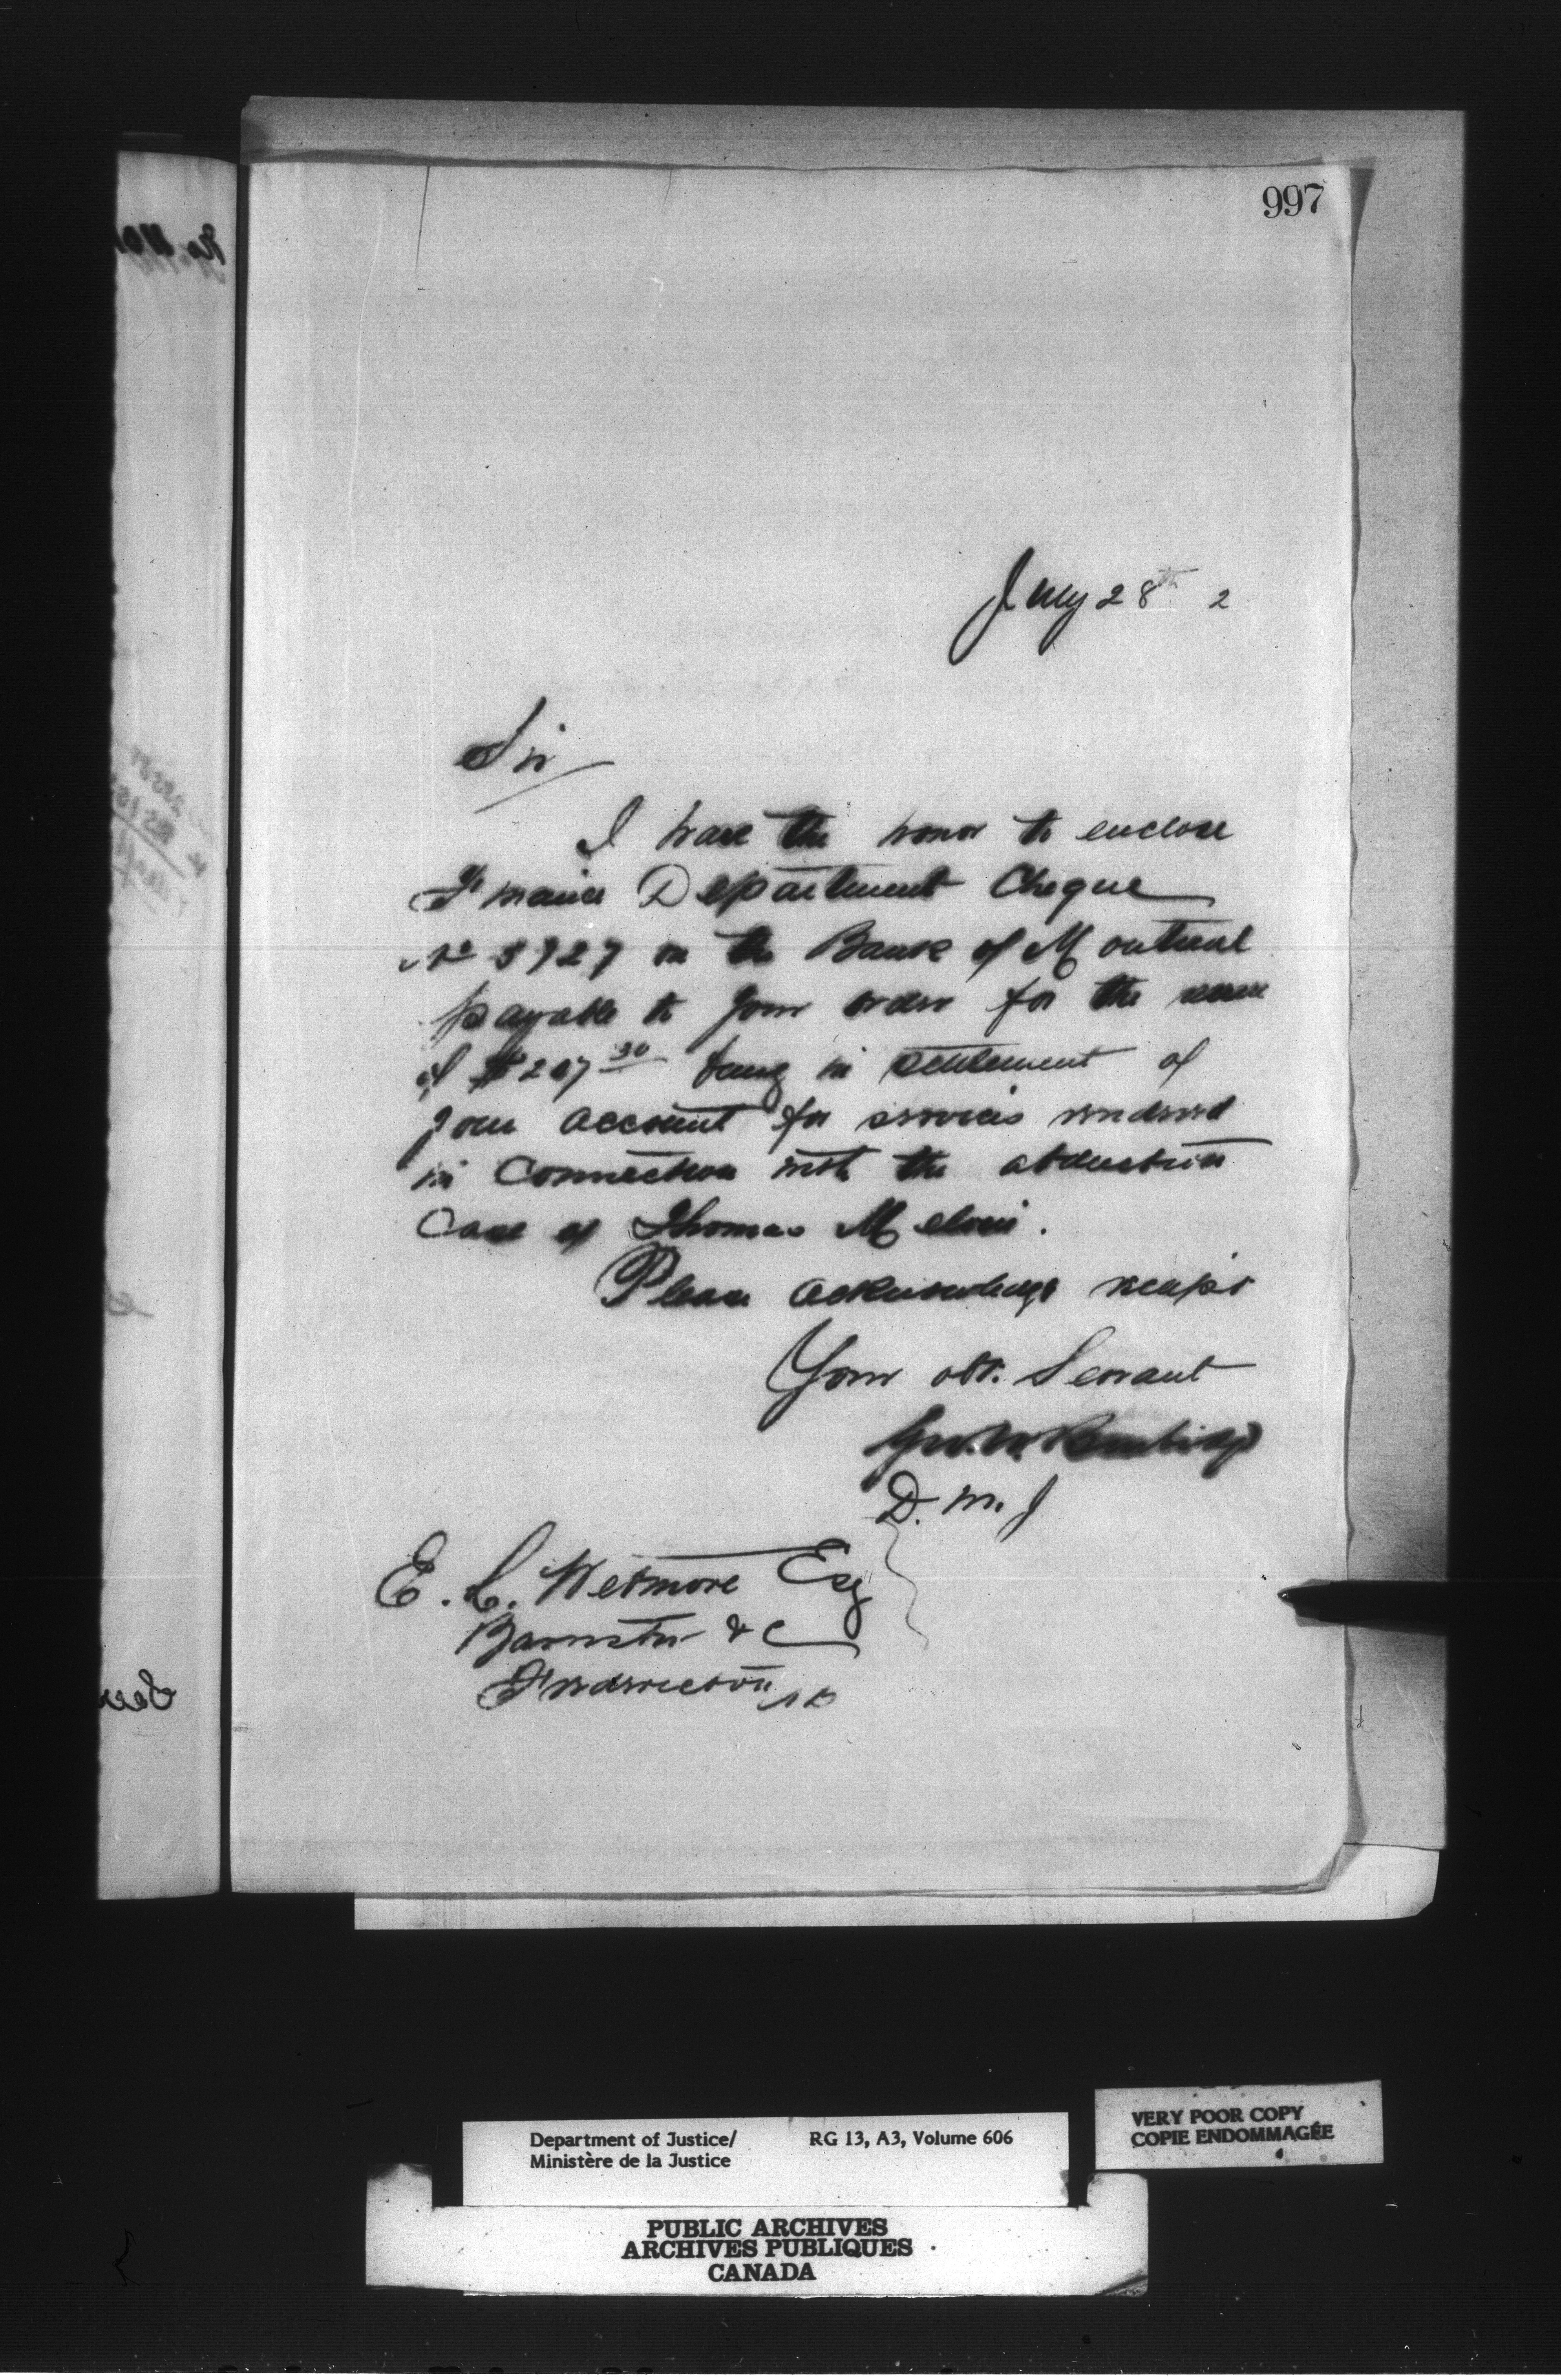 997
July 28th 2
Sir
I have the honor to enclose
Finance Department Cheque
No 3927 on the Bank of Montreal
payable to your order for the sum
of $207 30 being in settlement of
your account for services rendered
in connection with the abduction
Case of Thomas
Please acknowledge receipt
Your obt. Servant
Geo. W. Burbidge
D. M. J
E. L. Wetmore Esq
Barrister & C
Fredericton NB
Department of Justice/ RG 13, A3, Volume 606
Ministère de la Justice
VERY POOR COPY
COPIE ENDOMMAGÉE
PUBLIC ARCHIVES
ARCHIVES PUBLIQUES
CANADA